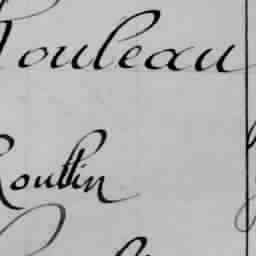 Rouleau
Routtin